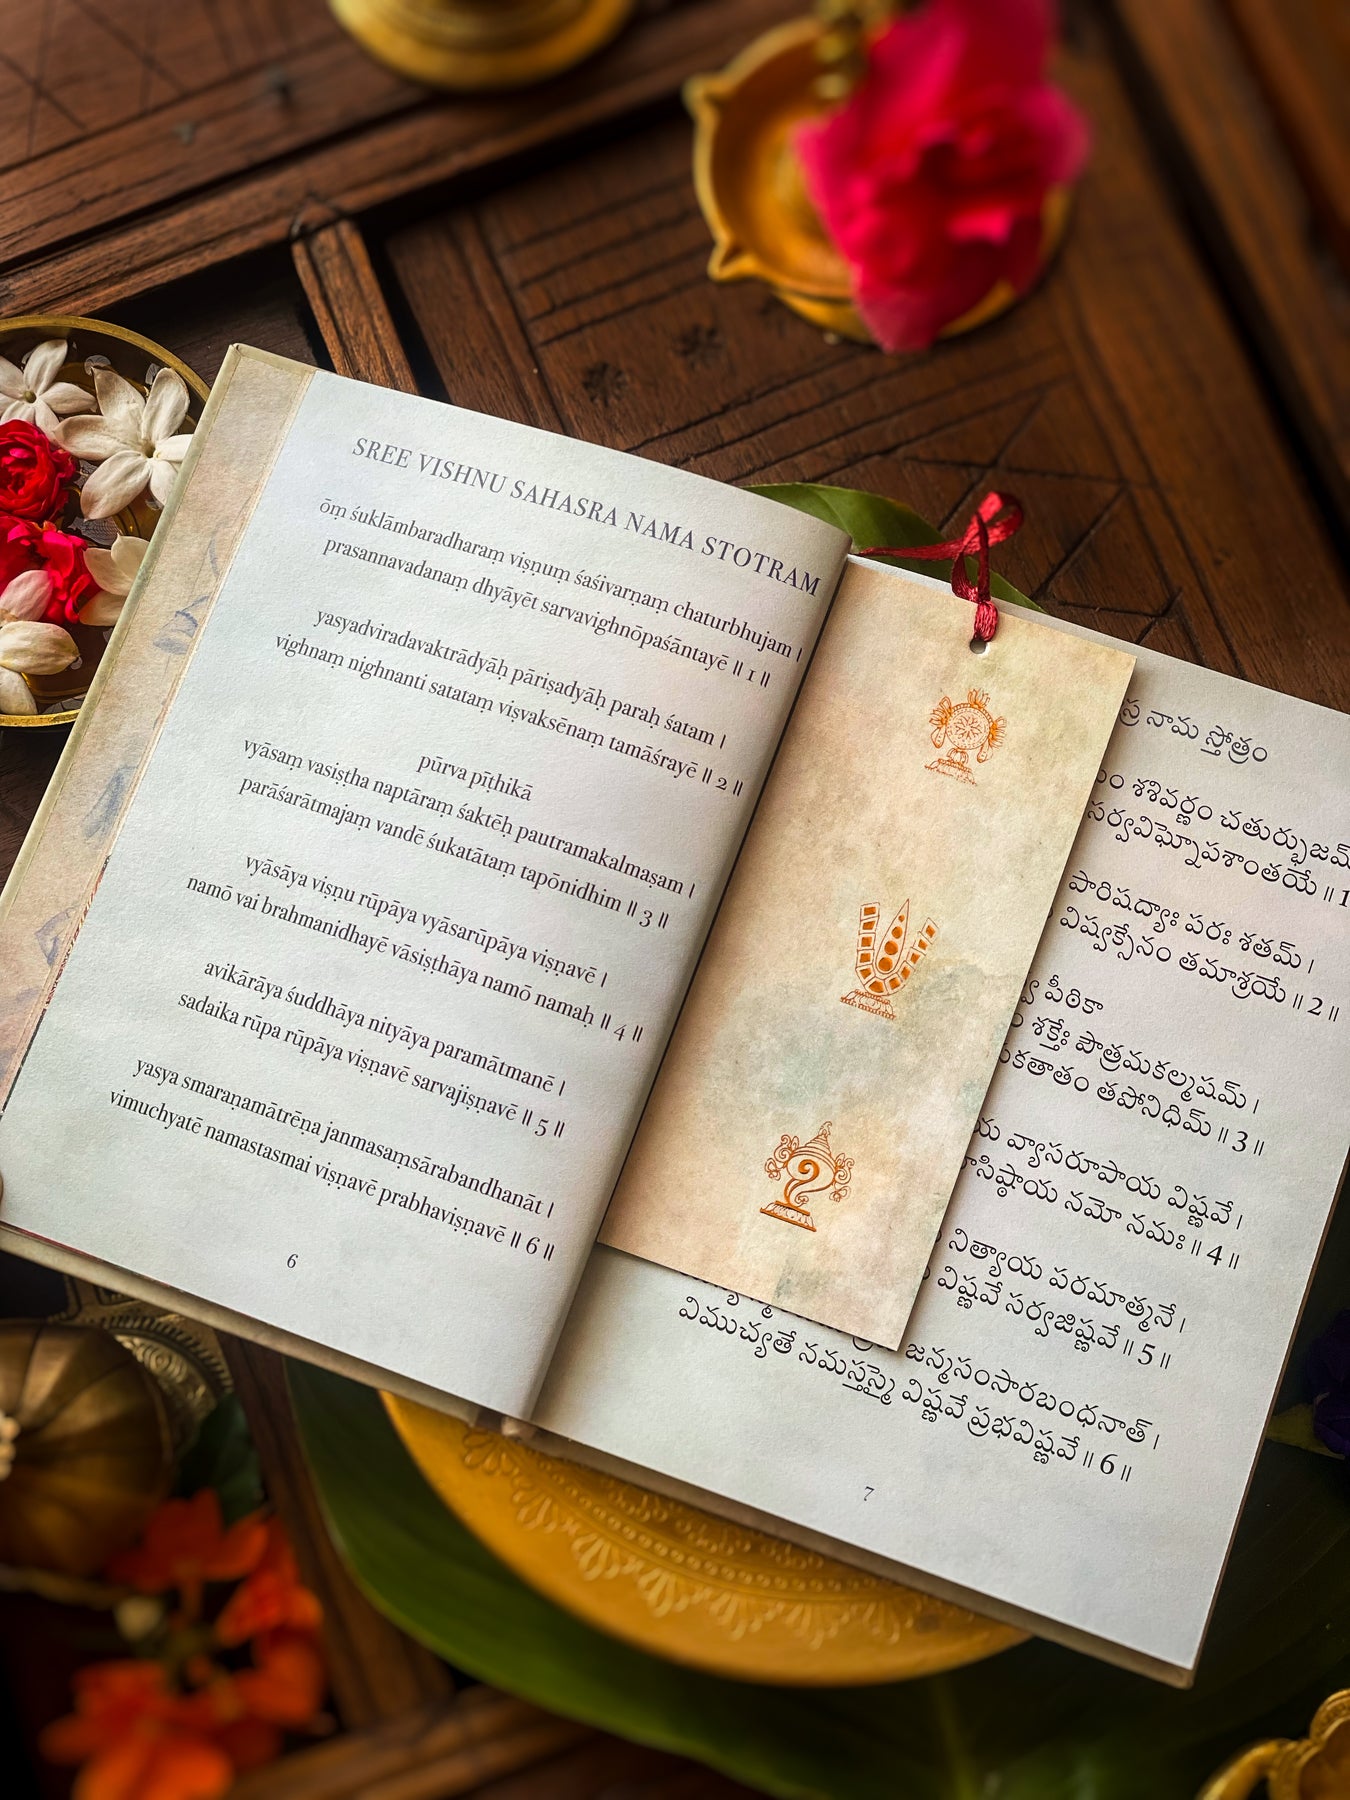 SREE VISHNU SAHASRA NAMA STOTRAM
ōṃ śuklāmbaradharaṃ viṣṇuṃ śaśivarṇaṃ chaturbhujam |
prasannavadanaṃ dhyāyēt sarvavighnōpaśāntayē || 1 ||
yasyadviradavaktrādyāḥ pāriṣadyāḥ paraḥ śatam |
vighnaṃ nighnanti satataṃ viṣvaksēnaṃ tamāśrayē || 2 ||
pūrva pīṭhikā
vyāsaṃ vasiṣṭha naptāraṃ śaktēḥ pautramakalmaṣam |
parāśarātmajaṃ vandē śukatātaṃ tapōnidhim || 3 ||
vyāsāya viṣṇu rūpāya vyāsarūpāya viṣṇavē |
namō vai brahmanidhayē vāsiṣṭhāya namō namaḥ || 4 ||
avikārāya śuddhāya nityāya paramātmanē |
sadaika rūpa rūpāya viṣṇavē sarvajiṣṇavē || 5 ||
yasya smaraṇamātrēṇa janmasaṃsārabandhanāt |
vimuchyatē namastasmai viṣṇavē prabhaviṣṇavē || 6 ||
6
నామ స్తోత్రం
శశివర్ణం చతుర్భుజమ్
సర్వవిఘ్నోపశాంతయే || 1
పారిషద్యాః పరః శతమ్ |
విష్వక్సేనం తమాశ్రయే || 2 ||
పీఠికా
శక్తేః పౌత్రమకల్మషమ్ |
తపోనిధిమ్ || 3 ||
వ్యాసరూపాయ విష్ణవే |
నమో నమః || 4 ||
నిత్యాయ పరమాత్మనే |
విష్ణవే సర్వజిష్ణవే || 5 ||
జన్మసంసారబంధనాత్ |
విముచ్యతే నమస్తస్మై విష్ణవే ప్రభవిష్ణవే || 6 ||
7